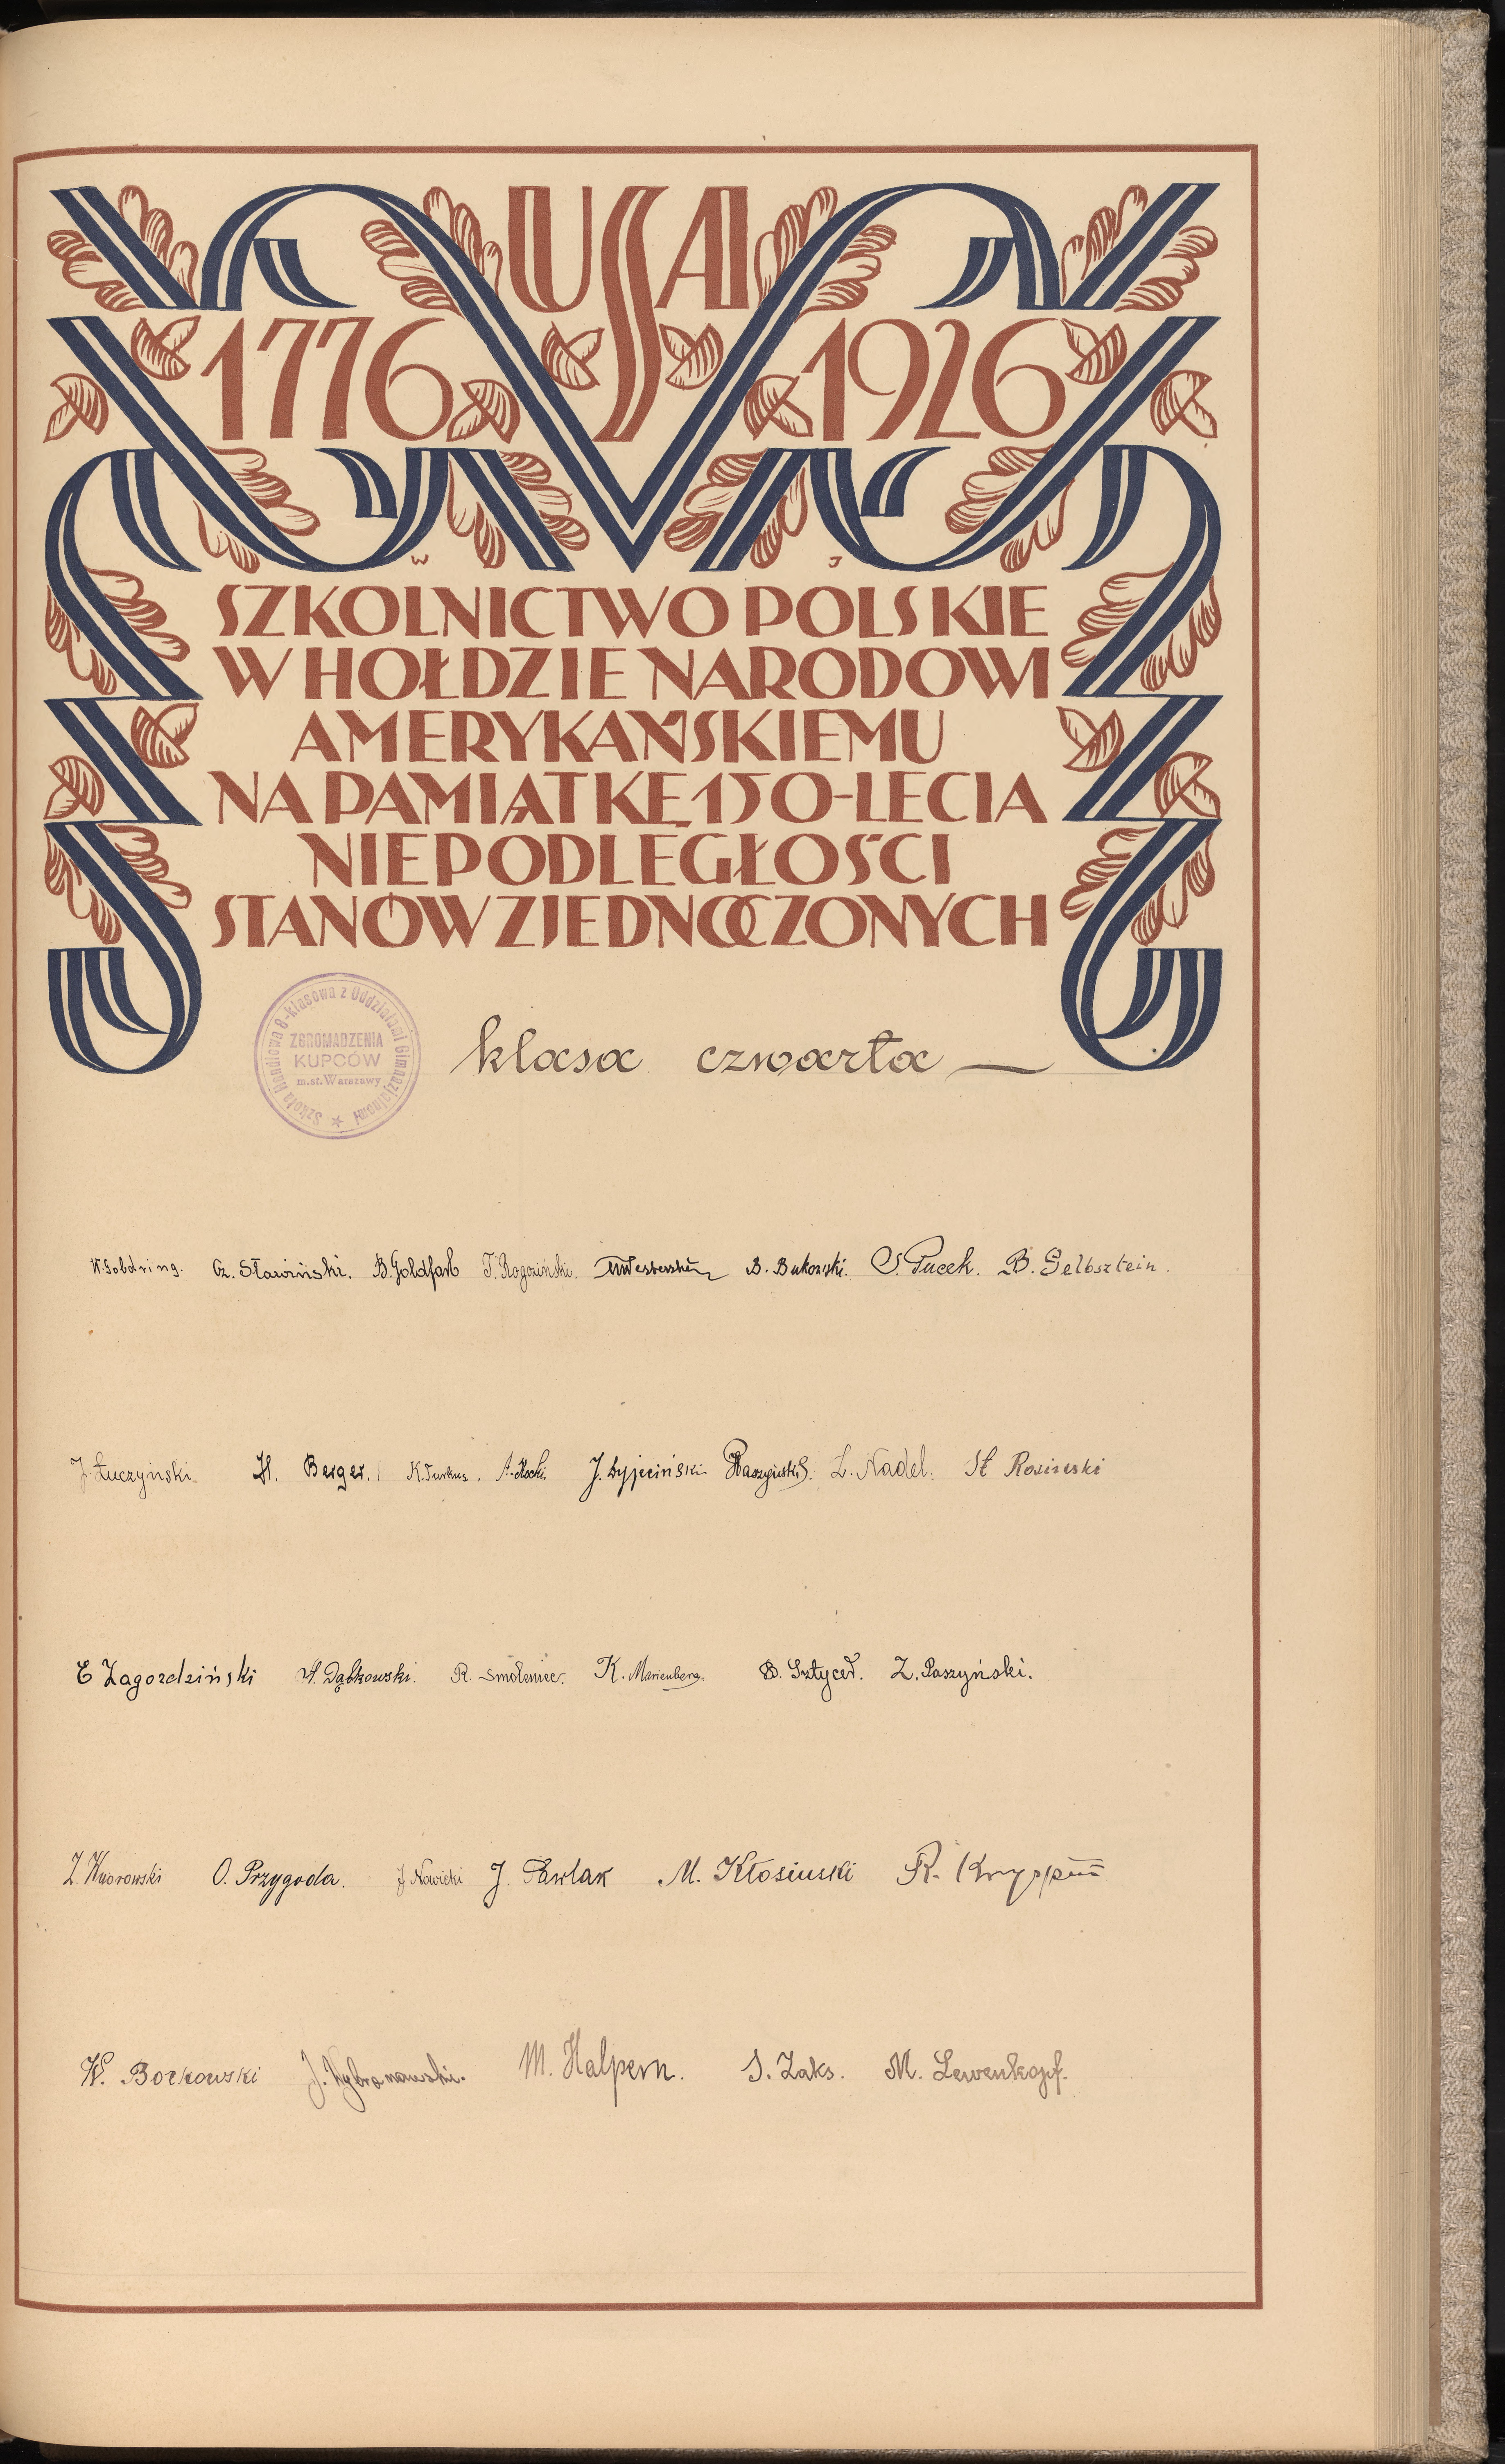 USA
1776 1926
W J
SZKOLNICTWO POLSKIE
W HOŁDZIE NARODOWI
AMERYKAŃSKIEMU
NA PAMIĄTKĘ 150-LECIA
NIEPODLEGŁOŚCI
STANÓW ZJEDNOCZONYCH
Szkoła Handlowa 8-klasowa z Oddziałami Gimnazjalnemi
ZGROMADZENIA
KUPCÓW
m.st. Warszawy
klasa czwarta
W. Goldring. Cz. Sławiński. B. Goldfarb T. Rogoziński. B. Bukowski. S. Pucek. B. Gelbsztein.
J. Łuczyński. H. Berger. K. Turkus. J. Łyjeciński L. Nadel. St Rosinski
E Zagoździński W. Dąbkowski. R. Smoleniec. K. Marienberg. B. Sztycer. Z. Paszyński.
Z. Kworowski O. Przygoda. J Nowicki J. Pawlak M. Kłosiński R.
W. Borkowski J. Wybranowski. M. Halpern. S. Zaks. M. Lewenkopf.